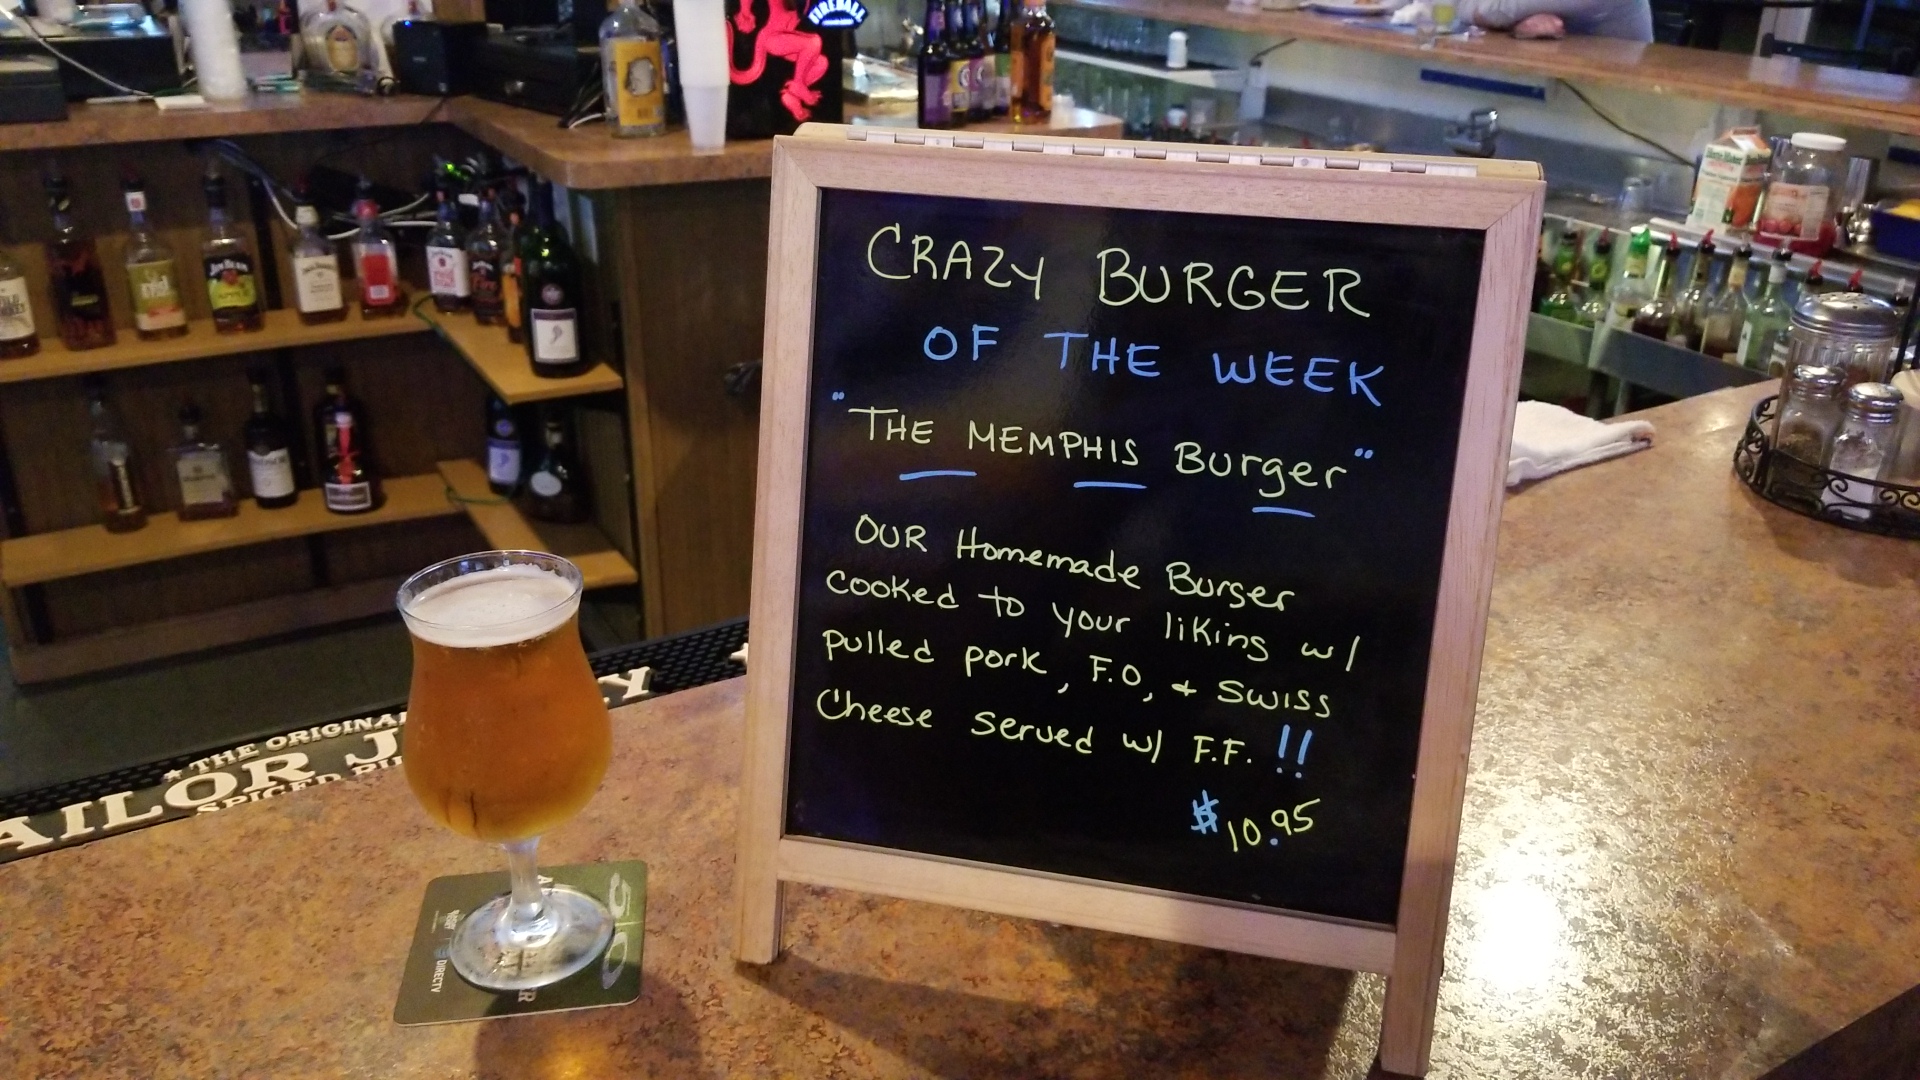 FIREBALL
CRAZY BURGER
OF THE WEEK
"THE MEMPHIS Burger"
OUR Homemade Burger
cooked to your liking w/
pulled pork, F.O, + SWISS
Cheese served w/ F.F. !!
$10.95
THE ORIGINAL
AILOR J
SPICED RU
Y
DIRECTV
JIM BEAM
APPLE